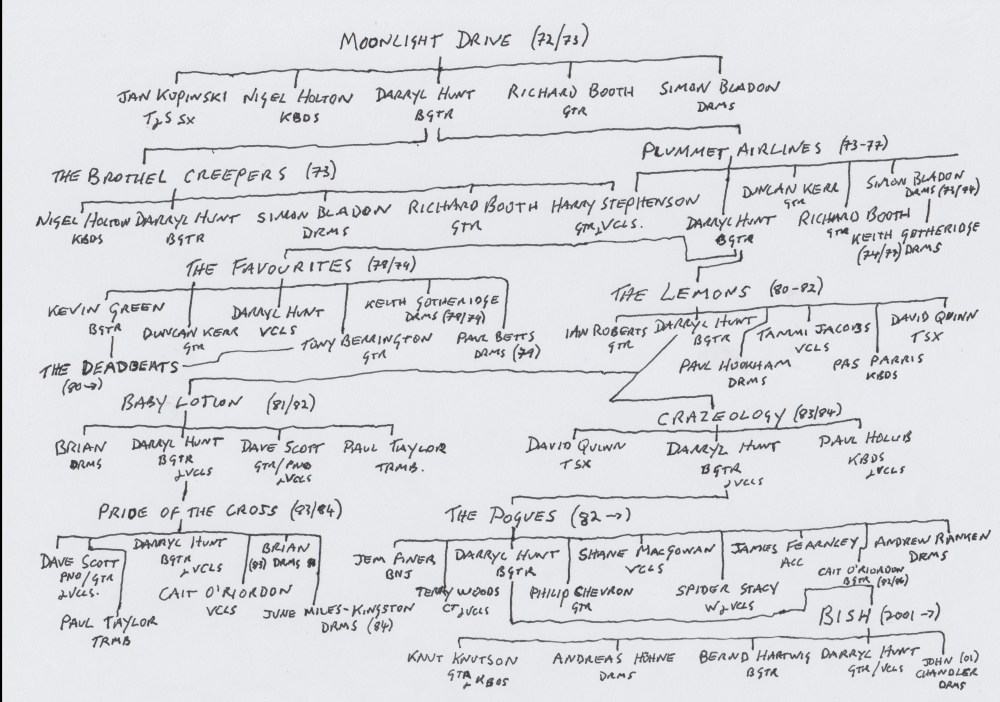 MOONLIGHT DRIVE (72/73)
JAN KOPINSKI
T & S SX
NIGEL HOLTON
KBDS
DARRYL HUNT
BGTR
RICHARD BOOTH
GTR
SIMON BLADON
DRMS
THE BROTHEL CREEPERS (73)
NIGEL HOLTON
KBDS
DARRYL HUNT
BGTR
SIMON BLADON
DRMS
RICHARD BOOTH
GTR
HARRY STEPHENSON
GTR & VCLS.
PLUMMET AIRLINES (73-77)
DARRYL HUNT
BGTR
DUNCAN KERR
GTR
RICHARD BOOTH
GTR
SIMON BLADON
DRMS (73/74)
KEITH GOTHERIDGE
(74/77) DRMS
THE FAVOURITES (78/79)
KEVIN GREEN
BGTR
DUNCAN KERR
GTR
DARRYL HUNT
VCLS
TONY BERRINGTON
GTR
KEITH GOTHERIDGE
DRMS (78/79)
PAUL BETTS
DRMS (79)
THE DEADBEATS
(80→)
THE LEMONS (80-82)
IAN ROBERTS
GTR
DARRYL HUNT
BGTR
PAUL HOOKHAM
DRMS
TAMMI JACOBS
VCLS
PAS PARRIS
KBDS
DAVID QUINN
TSX
BABY LOTION (81/82)
BRIAN
DRMS
DARRYL HUNT
BGTR
& VCLS
DAVE SCOTT
GTR/PNO
& VCLS
PAUL TAYLOR
TRMB.
CRAZEOLOGY (83/84)
DAVID QUINN
TSX
DARRYL HUNT
BGTR
& VCLS
PAUL HOLLIB
KBDS
& VCLS
PRIDE OF THE CROSS (83/84)
DAVE SCOTT
PNO/GTR
& VCLS.
PAUL TAYLOR
TRMB
DARRYL HUNT
BGTR
& VCLS
CAIT O'RIORDON
VCLS
BRIAN
(83) DRMS
JUNE MILES-KINGSTON
DRMS (84)
THE POGUES (82→)
JEM FINER
BNJ
TERRY WOODS
CT & VCLS
DARRYL HUNT
BGTR
PHILIP CHEVRON
GTR
SHANE MACGOWAN
VCLS
SPIDER STACY
W & VCLS
JAMES FEARNLEY
ACC
CAIT O'RIORDON
BGTR (82/86)
ANDREW RANKEN
DRMS
BISH (2001→)
KNUT KNUTSON
GTR
& KBDS
ANDREAS HÖHNE
DRMS
BERND HARTWIG
BGTR
DARRYL HUNT
GTR/VCLS
JOHN (01)
CHANDLER
DRMS